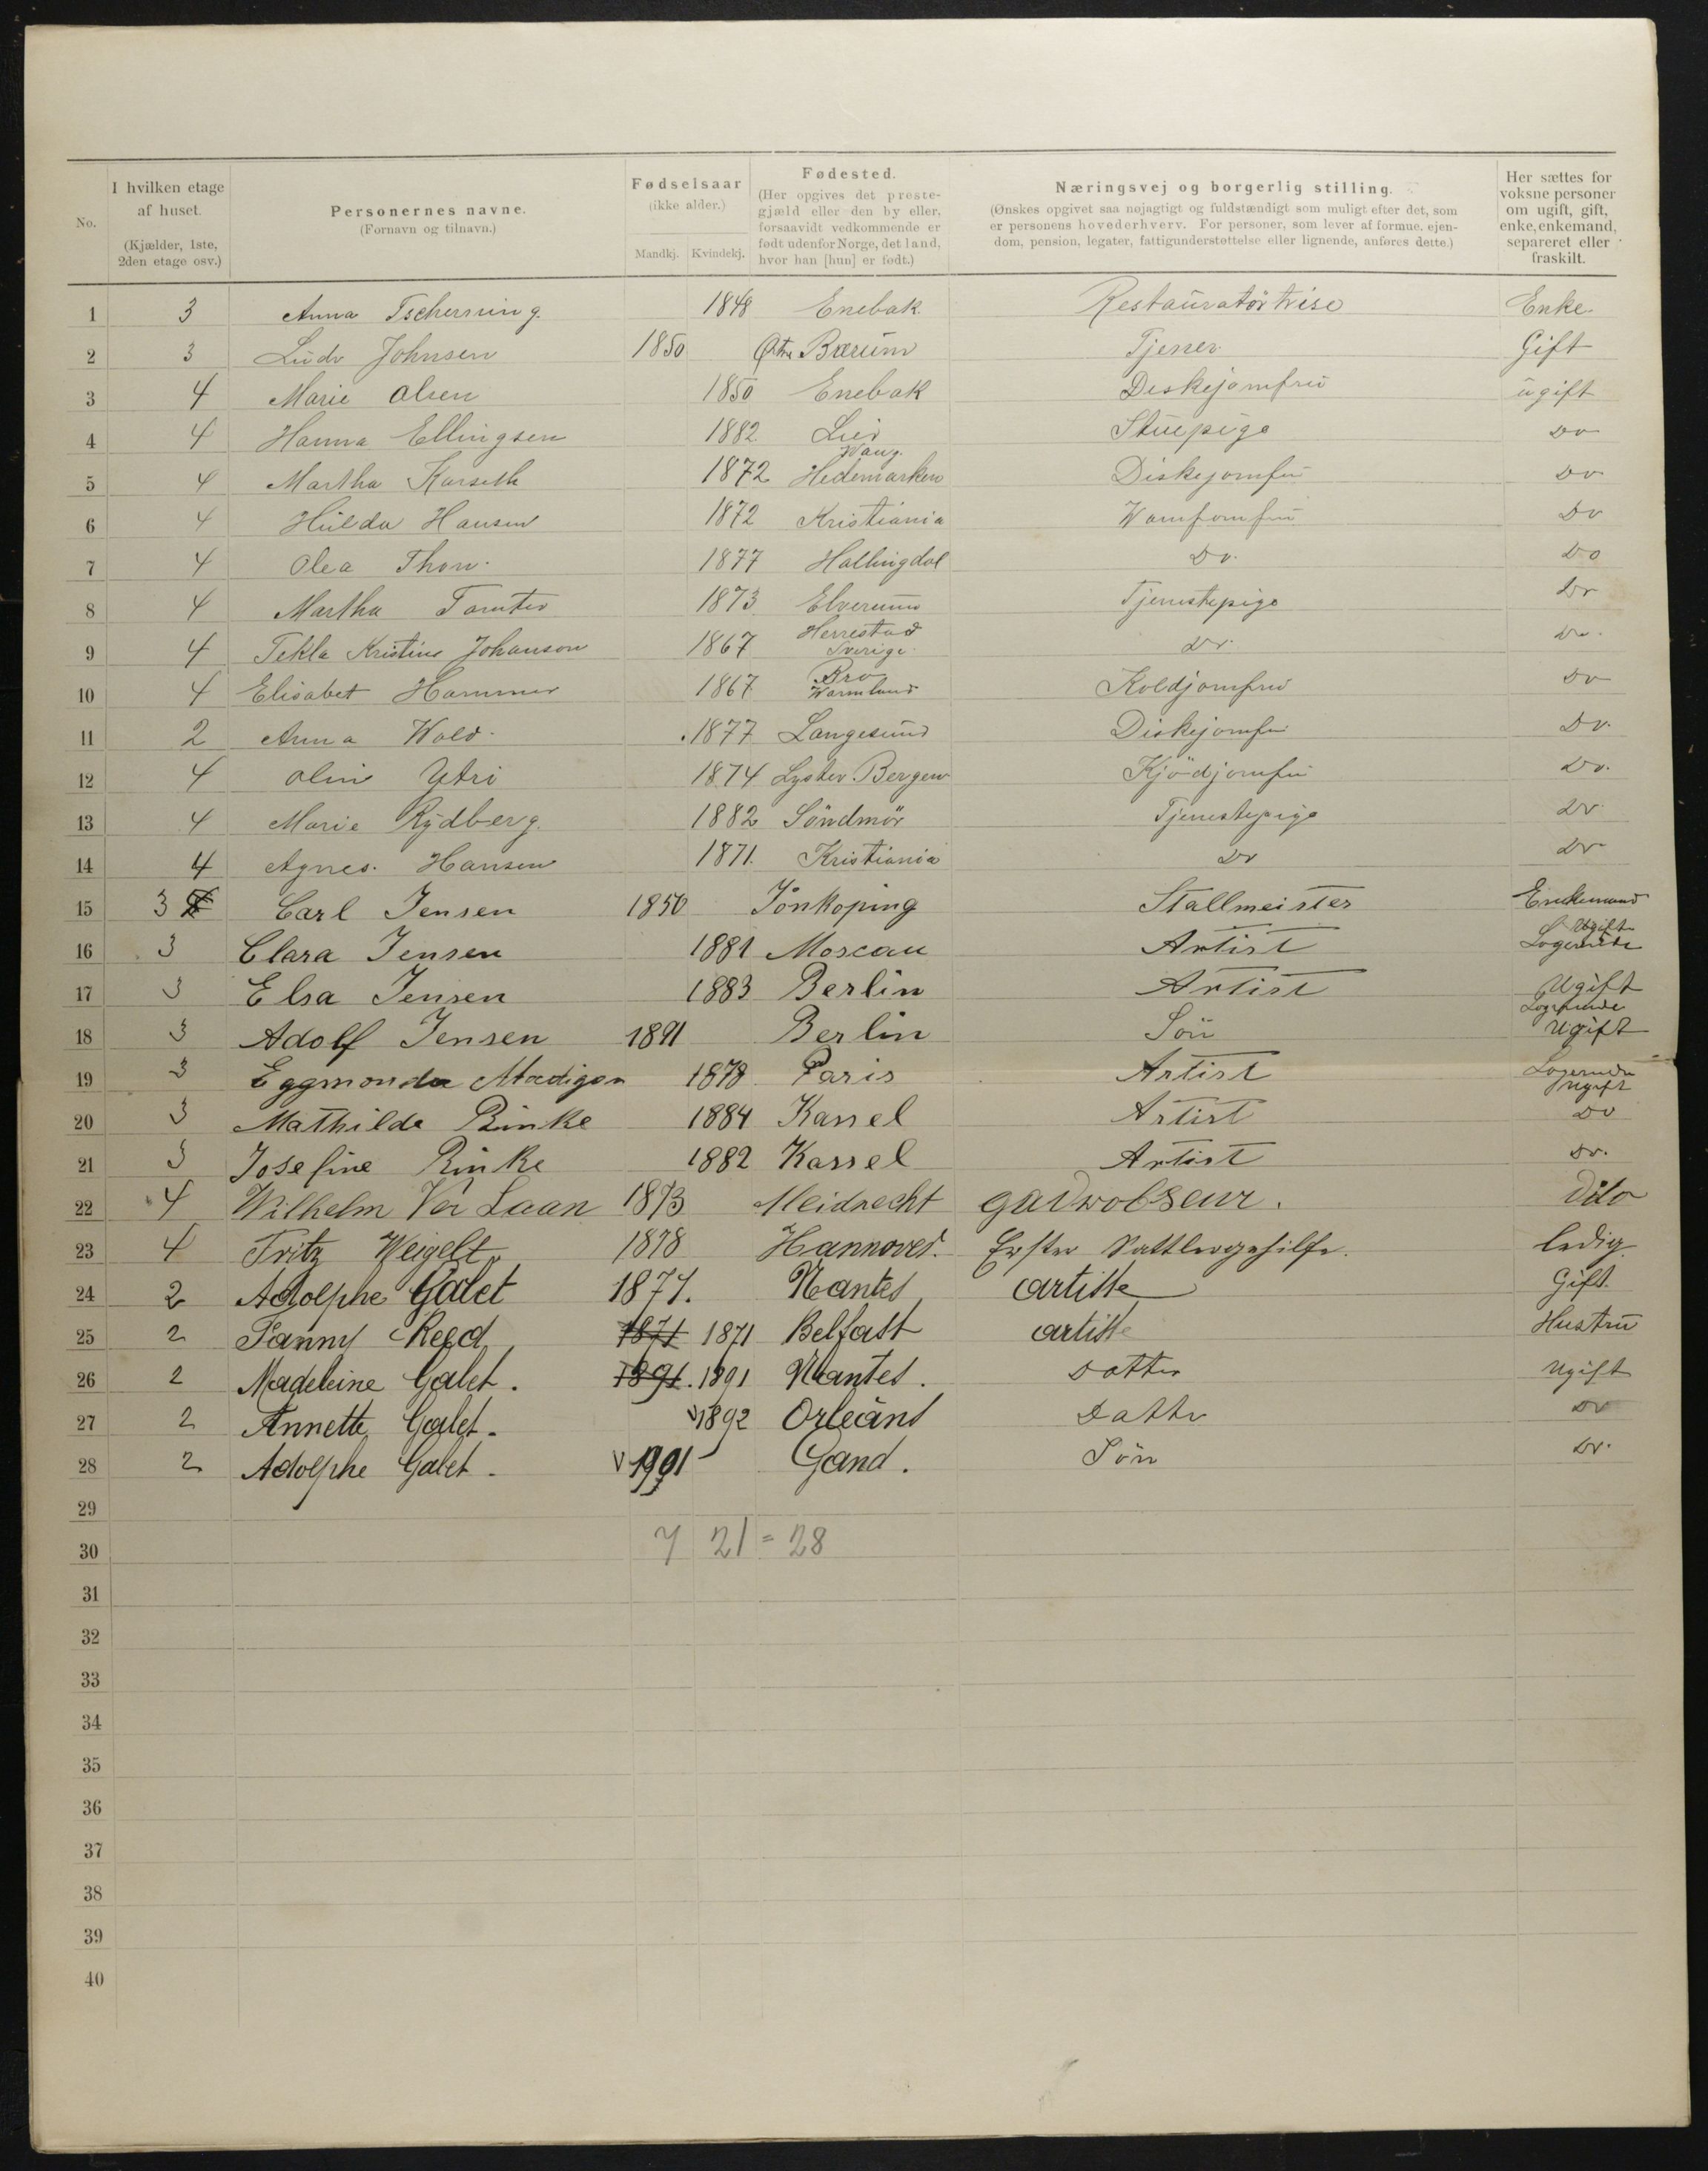 No.
I hvilken etage af huset. (Kjælder, 1ste, 2den etage osv.)
Personernes navne. (Fornavn og tilnavn.)
Fødselsaar (ikke alder.) Mandkj. Kvindekj.
Fødested. (Her opgives det prestegjæld eller den by eller, forsaavidt vedkommende er født udenfor Norge, det land, hvor han [hun] er født.)
Næringsvej og borgerlig stilling. (Ønskes opgivet saa nøjagtigt og fuldstændigt som muligt efter det, som er personens hovederhverv. For personer, som lever af formue, ejendom, pension, legater, fattigunderstøttelse eller lignende, anføres dette.)
Her sættes for voksne personer om ugift, gift, enke, enkemand, separeret eller fraskilt.
1 3 Anna Tscherning. 1848 Enebak. Restauratörtrise Enke.
2 3 Ludv Johnsen 1850 Østre Bærum Tjener Gift
3 4 Marie Olsen 1850 Enebak Diskejomfru ugift
4 4 Hanna Ellingsen 1882 Lier Stuepige Do
5 4 Martha Karseth 1872 Vang. Hedemarken Diskejomfru Do
6 4 Hulda Hansen 1872 Kristiania Do
7 4 Olea Thon. 1877 Hallingdal Do. Do
8 4 Martha Tomter 1873 Elverum Tjenestepige Do
9 4 Tekla Kristine Johanson 1867 Herrestad Sverige. Do. Do.
10 4 Elisabet Hammer 1867 Bro Warmland Koldjomfru Do
11 2 Anna Wold. 1877 Langesund Diskejomfru Do.
12 4 Olin Ytri 1874 Lyster Bergen Kjödjomfru Do.
13 4 Marie Rydberg. 1882 Söndmör Tjenestepige Do
14 4 Agnes. Hansen 1871. Kristiania Do Do
15 3 4 Carl Jensen 1850 Jönkoping Stallmeister Enkemand
16 3 Clara Jensen 1881 Moscau Artist Ugift Logerende
17 3 Elsa Jensen 1883 Berlin Artist Ugift Logerende
18 3 Adolf Jensen 1891 Berlin Sön Ugift
19 3 Eggmonda Madigan 1878 Paris Artist Logerende Ugift
20 3 Mathilde Rinke 1884 Kassel Artist Do
21 3 Josefine Rinke 1882 Kassel Artist Do.
22 4 Wilhelm Ver Laan 1873 Meidrecht gardrobseur. Dito
23 4 Fritz Weigelt 1878 Hannover. Erster Sattlergehilfe. ledig.
24 2 Adolphe Galet 1871. Nantes artiste Gift.
25 2 Fanny Reed 1871 1871 Belfast artiste Hustru
26 2 Madeleine Galet. 1891. 1891 Nantes. Datter Ugift
27 2 Annette Galet. 1892 Orleans Datter Do
28 2 Adolphe Galet. 1901 Gand. Sön Do.
29
30 7 21 = 28
31
32
33
34
35
36
37
38
39
40